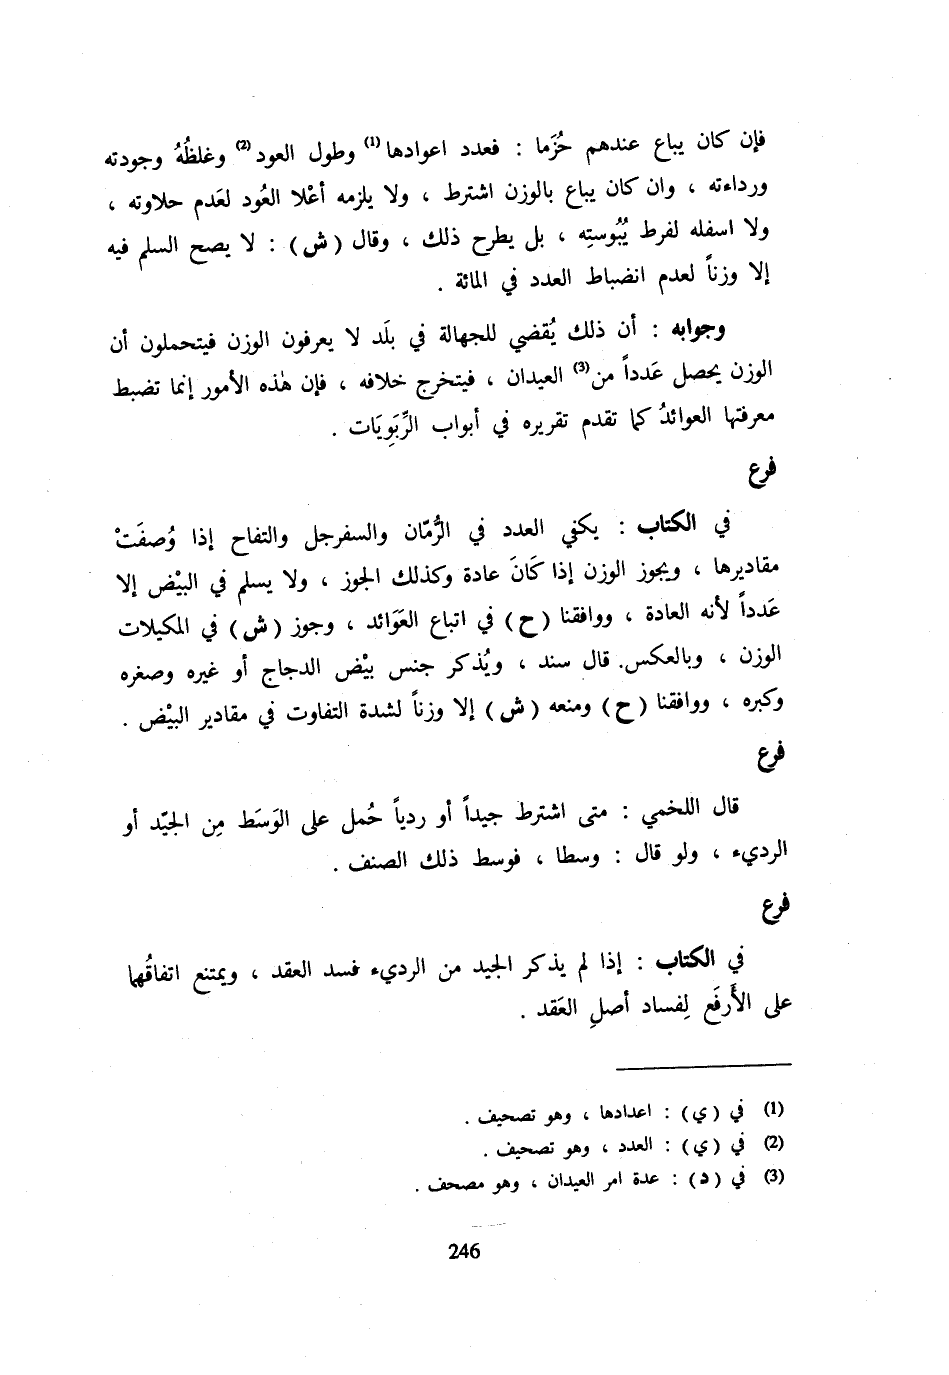 فإن كان يباع عندهم حُزَما : فعدد اعوادها(1) وطول العود(2) وغلظُهُ وجودته
ورداءته ، وان كان يباع بالوزن اشترط ، ولا يلزمه أعْلا العُود لعَدم حلاوته ،
ولا اسفله لفرط يُبُوستِه ، بل يطرح ذلك ، وقال ( ش ) : لا يصح السلم فيه
إلا وزناً لعدم انضباط العدد في المائة .
وجوابه : أن ذلك يُقضي للجهالة في بلَد لا يعرفون الوزن فيتحملون أن
الوزن يحصل عَدداً من(3) العيدان ، فيتخرج خلافه ، فإن هٰذه الأمور إنما تضبط
معرفتها العوائدُ كما تقدم تقريره في أبواب الرِّبَوِيَات .
فرع
في الكتاب : يكفي العدد في الرُّمّان والسفرجل والتفاح إذا وُصفَتْ
مقاديرها ، ويجوز الوزن إذا كَانَ عادة وكذلك الجوز ، ولا يسلم في البيْض إلا
عَدداً لأنه العادة ، ووافقنا ( ح ) في اتباع العَوَائد ، وجوز ( ش ) في المكيلات
الوزن ، وبالعكس. قال سند ، ويُذكر جنس بيْض الدجاج أو غيره وصغره
وكبره ، ووافقنا ( ح ) ومنعه ( ش ) إلا وزناً لشدة التفاوت في مقادير البيْض .
فرع
قال اللخمي : متى اشترط جيداً أو ردياً حُمل على الوَسَط مِن الجيّد أو
الرديء ، ولو قال : وسطا ، فوسط ذلك الصنف .
فرع
في الكتاب : إذا لم يذكر الجيد من الرديء فسد العقد ، ويمتنع اتفاقُهما
على الأَرفَع لِفساد أصلِ العَقد .
(1) في ( ي ) : اعدادها ، وهو تصحيف .
(2) في ( ي ) : العدد ، وهو تصحيف .
(3) في ( د ) : عدة امر العيدان ، وهو مصحف .
246